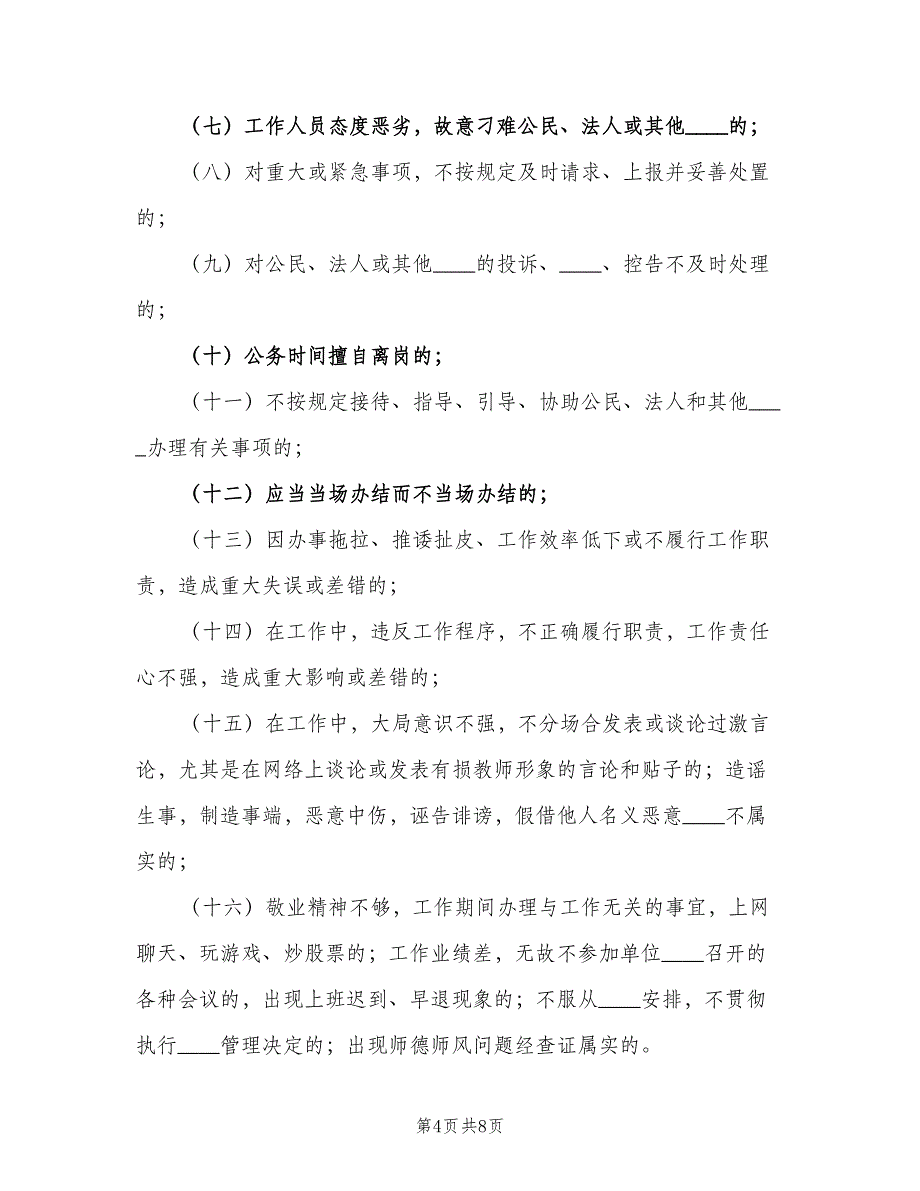 （七）工作人员态度恶劣，故意刁难公民、法人或其他____的；
（八）对重大或紧急事项，不按规定及时请求、上报并妥善处置
的；
（九）对公民、法人或其他____的投诉、____、控告不及时处理
的；
（十）公务时间擅自离岗的；
（十一）不按规定接待、指导、引导、协助公民、法人和其他___
_办理有关事项的；
（十二）应当当场办结而不当场办结的；
（十三）因办事拖拉、推诿扯皮、工作效率低下或不履行工作职
责，造成重大失误或差错的；
（十四）在工作中，违反工作程序，不正确履行职责，工作责任
心不强，造成重大影响或差错的；
（十五）在工作中，大局意识不强，不分场合发表或谈论过激言
论，尤其是在网络上谈论或发表有损教师形象的言论和贴子的；造谣
生事，制造事端，恶意中伤，诬告诽谤，假借他人名义恶意____不属
实的；
（十六）敬业精神不够，工作期间办理与工作无关的事宜，上网
聊天、玩游戏、炒股票的；工作业绩差，无故不参加单位____召开的
各种会议的，出现上班迟到、早退现象的；不服从____安排，不贯彻
执行____管理决定的；出现师德师风问题经查证属实的。
第4页 共8页